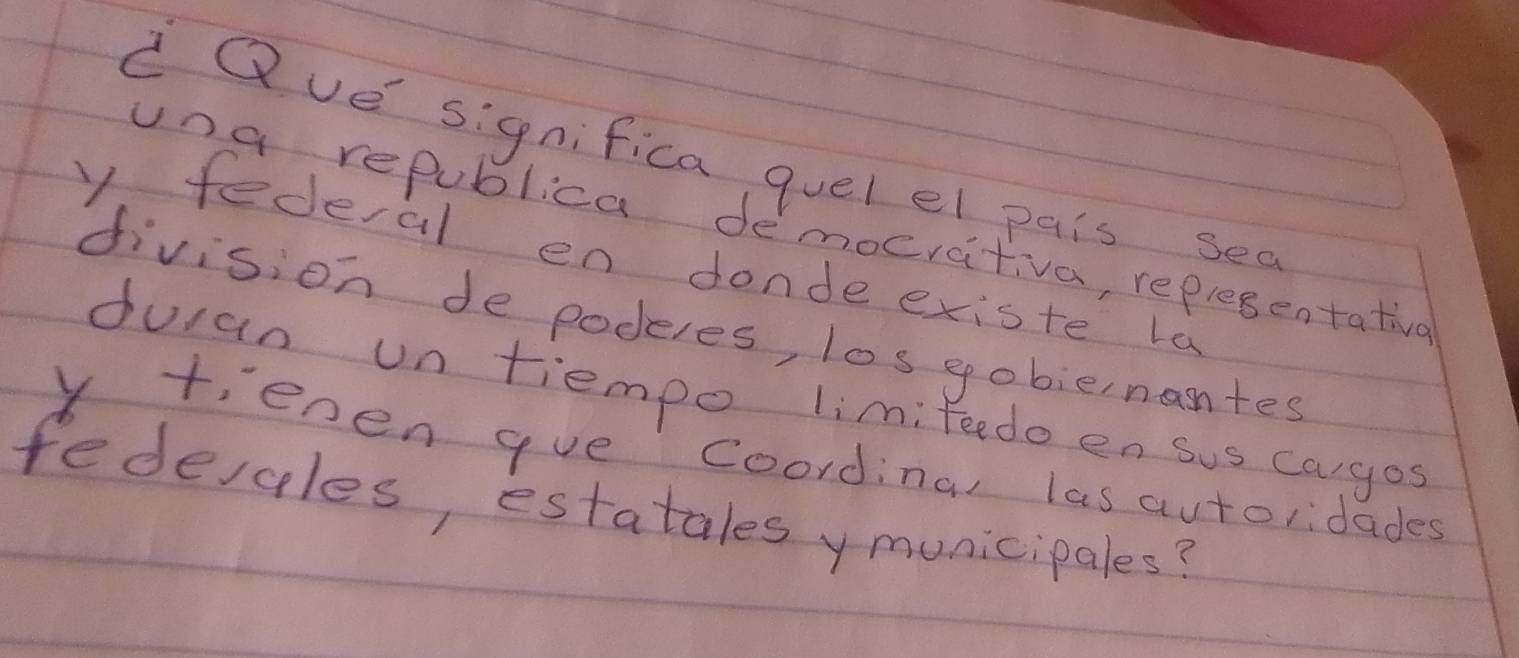 ¿Qué significa quel el país sea
una republica democrátiva, representativa
y federal en donde existe la
división de poderes, los gobiernantes
duran un tiempo limiteado en sus cargos
y tienen que coordinar las autoridades
federales, estatales y municipales?